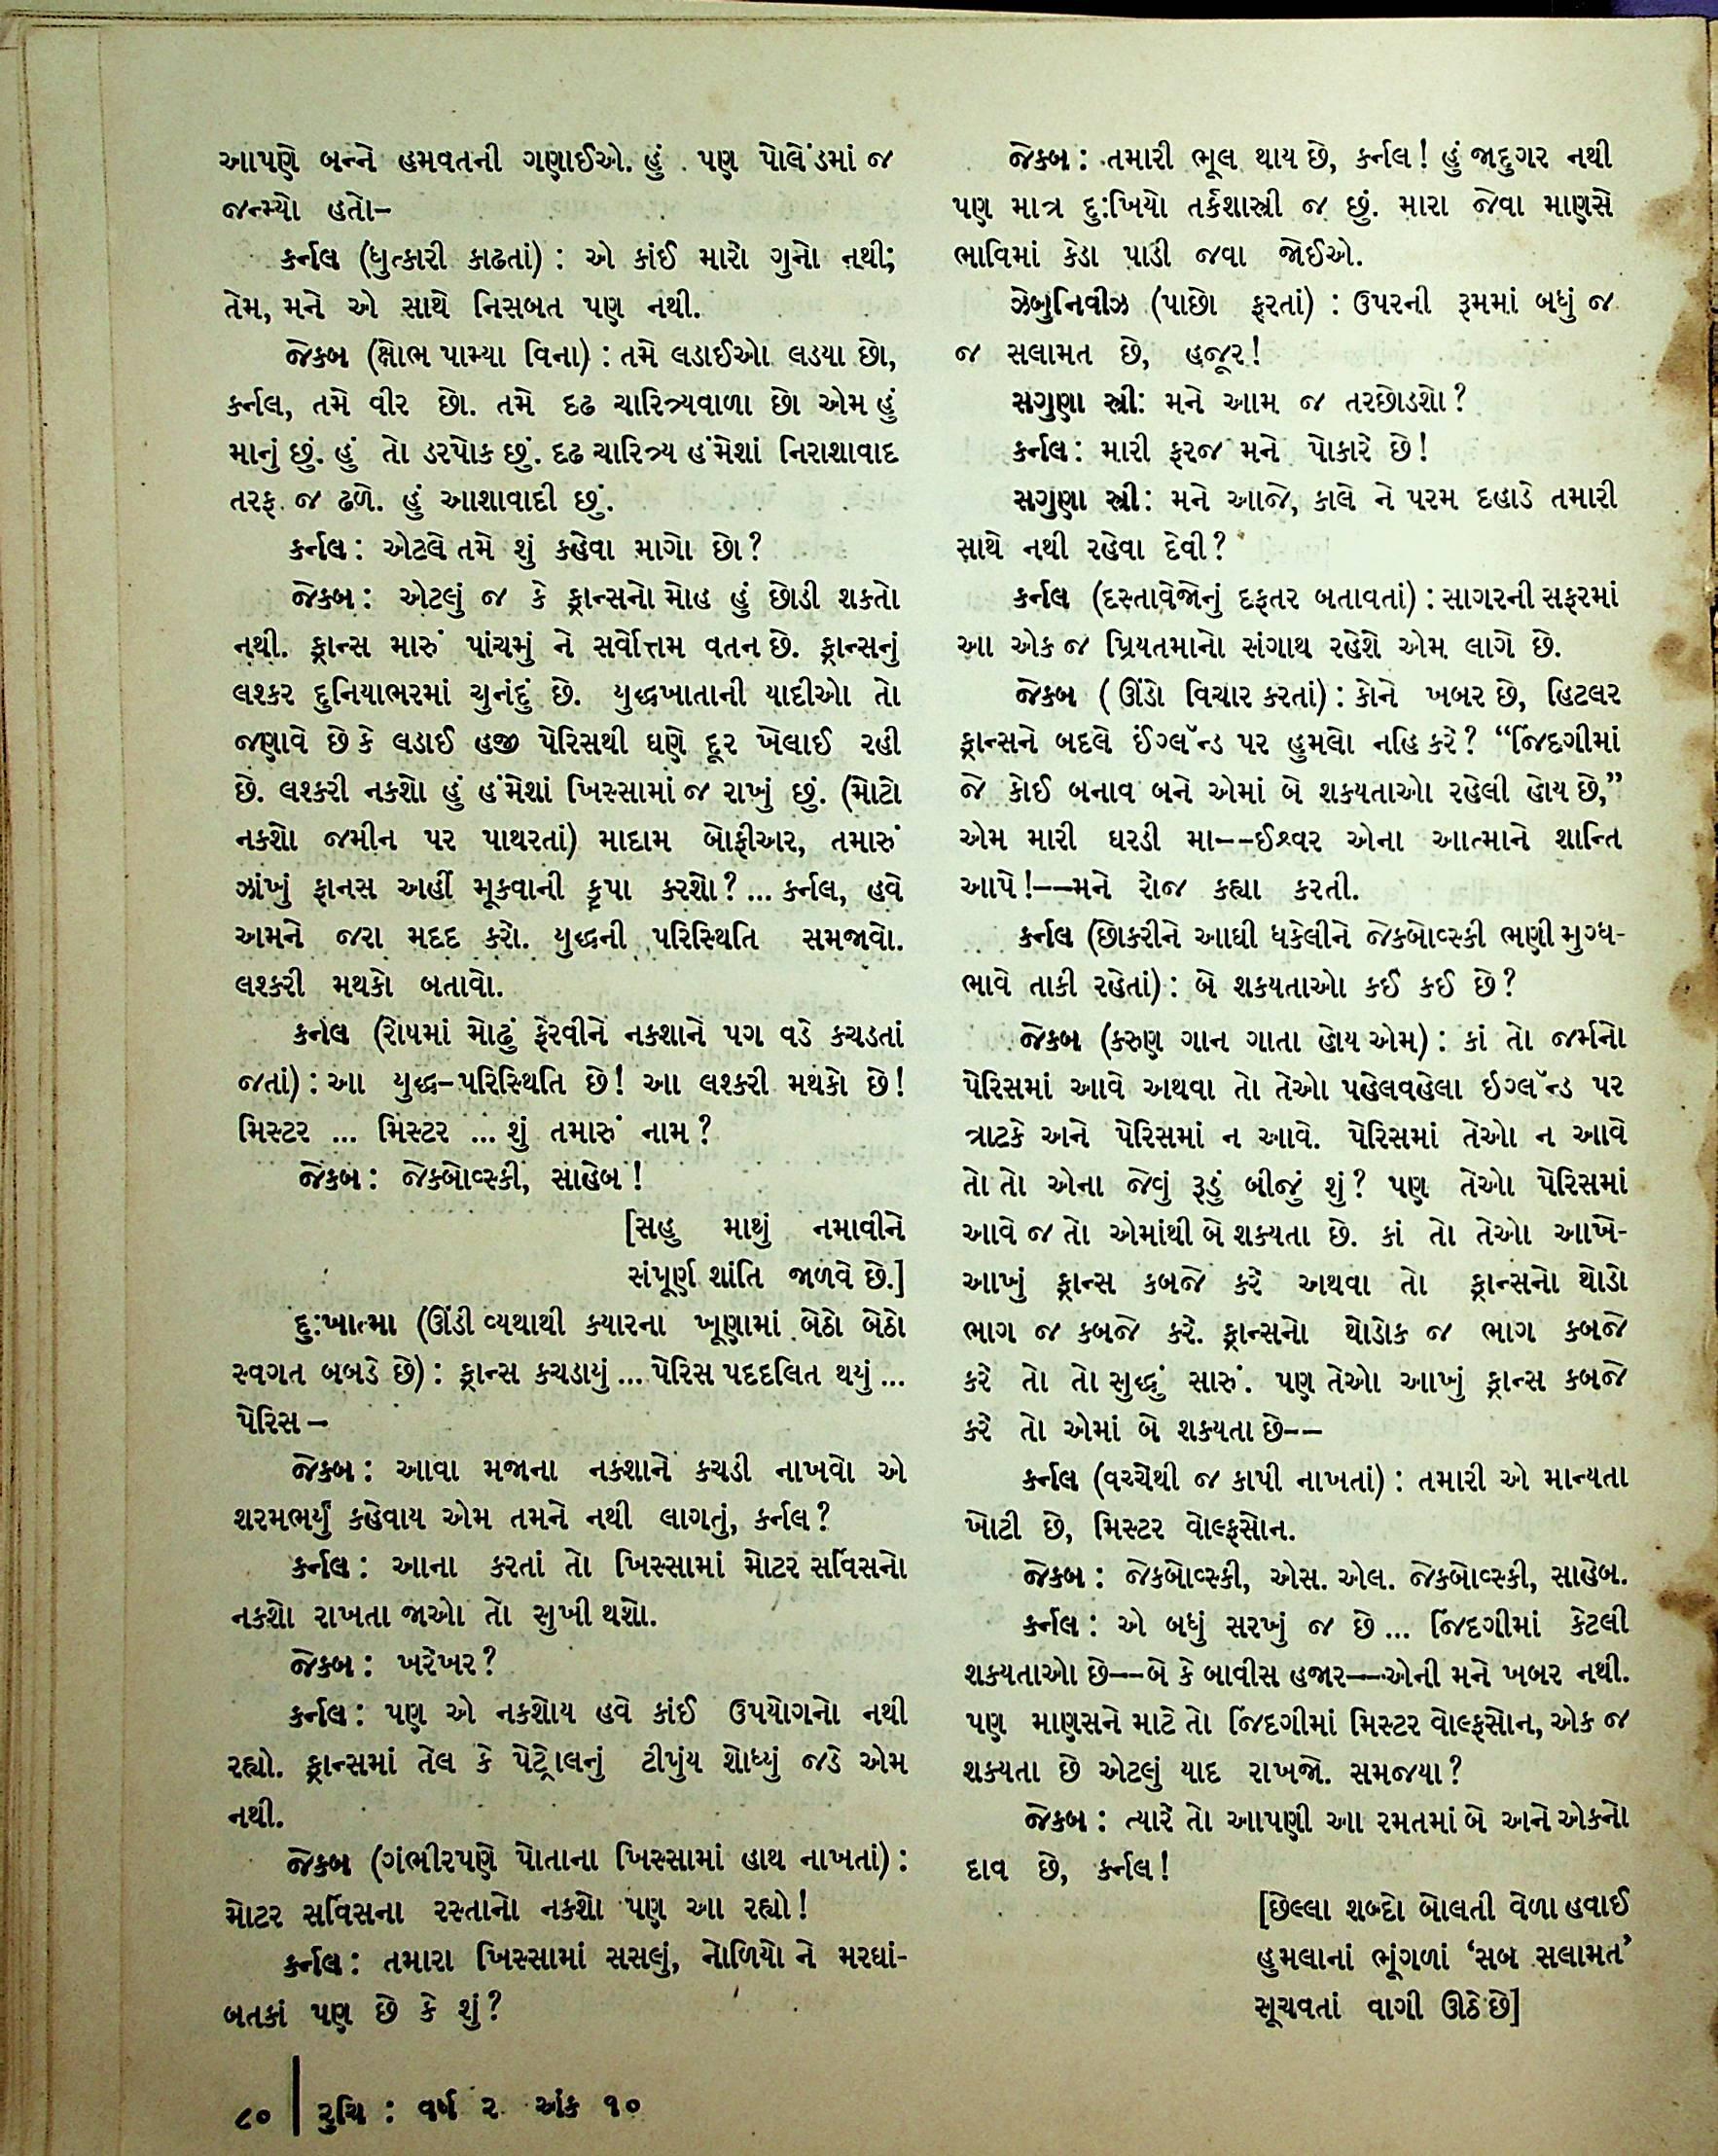 આપણે બન્ને હમવતની ગણાઈએ. હું પણ પોલેંડમાં જ
જન્મ્યો હતો–
કર્નલ (ધુત્કારી કાઢતાં) : એ કાંઈ મારો ગુનો નથી;
તેમ, મને એ સાથે નિસબત પણ નથી.
જેકબ (ક્ષોભ પામ્યા વિના) : તમે લડાઈઓ લડયા છો,
કર્નલ, તમે વીર છો. તમે દૃઢ ચારિત્ર્યવાળા છો એમ હું
માનું છું. હું તો ડરપોક છું. દૃઢ ચારિત્ર્ય હંમેશાં નિરાશાવાદ
તરફ જ ઢળે. હું આશાવાદી છું.
કર્નલ : એટલે તમે શું કહેવા માગો છો?
જેકબ : એટલું જ કે ફ્રાન્સનો મોહ હું છોડી શકતો
નથી. ફ્રાન્સ મારું પાંચમું ને સર્વોત્તમ વતન છે. ફ્રાન્સનું
લશ્કર દુનિયાભરમાં ચુનંદું છે. યુદ્ધખાતાની યાદીઓ તો
જણાવે છે કે લડાઈ હજી પેરિસથી ઘણે દૂર ખેલાઈ રહી
છે. લશ્કરી નકશો હું હંમેશાં ખિસ્સામાં જ રાખું છું. (મોટો
નકશો જમીન પર પાથરતાં) માદામ બોફીઅર, તમારું
ઝાંખું ફાનસ અહીં મૂકવાની કૃપા કરશો? ... કર્નલ, હવે
અમને જરા મદદ કરો. યુદ્ધની પરિસ્થિતિ સમજાવો.
લશ્કરી મથકો બતાવો.
કર્નલ (રોષમાં મોઢું ફેરવીને નકશાને પગ વડે કચડતાં
જતાં) : આ યુદ્ધ–પરિસ્થિતિ છે! આ લશ્કરી મથકો છે!
મિસ્ટર ... મિસ્ટર ... શું તમારું નામ?
જેકબ : જેકબોવ્સ્કી, સાહેબ!
[સહુ માથું નમાવીને
સંપૂર્ણ શાંતિ જાળવે છે.]
દુ:ખાત્મા (ઊંડી વ્યથાથી ક્યારના ખૂણામાં બેઠો બેઠો
સ્વગત બબડે છે) : ફ્રાન્સ કચડાયું ... પેરિસ પદદલિત થયું ...
પેરિસ –
જેકબ : આવા મજાના નકશાને કચડી નાખવો એ
શરમભર્યું કહેવાય એમ તમને નથી લાગતું, કર્નલ?
કર્નલ : આના કરતાં તો ખિસ્સામાં મોટર સર્વિસનો
નકશો રાખતા જાઓ તો સુખી થશો.
જેકબ : ખરેખર?
કર્નલ : પણ એ નકશોય હવે કાંઈ ઉપયોગનો નથી
રહ્યો. ફ્રાન્સમાં તેલ કે પેટ્રોલનું ટીપુંય શોધ્યું જડે એમ
નથી.
જેકબ (ગંભીરપણે પોતાના ખિસ્સામાં હાથ નાખતાં) :
મોટર સર્વિસના રસ્તાનો નકશો પણ આ રહ્યો!
કર્નલ : તમારા ખિસ્સામાં સસલું, નોળિયો ને મરઘાં-
બતકાં પણ છે કે શું?
જેકબ : તમારી ભૂલ થાય છે, કર્નલ! હું જાદુગર નથી
પણ માત્ર દુ:ખિયો તર્કશાસ્ત્રી જ છું. મારા જેવા માણસે
ભાવિમાં કેડા પાડી જવા જોઈએ.
ઝેબુનિવીઝ (પાછો ફરતાં) : ઉપરની રૂમમાં બધું જ
જ સલામત છે, હજૂર!
સગુણા સ્ત્રી: મને આમ જ તરછોડશો?
કર્નલ: મારી ફરજ મને પોકારે છે!
સગુણા સ્ત્રી: મને આજે, કાલે ને પરમ દહાડે તમારી
સાથે નથી રહેવા દેવી?
કર્નલ (દસ્તાવેજોનું દફતર બતાવતાં) : સાગરની સફરમાં
આ એક જ પ્રિયતમાનો સંગાથ રહેશે એમ લાગે છે.
જેકબ (ઊંડો વિચાર કરતાં) : કોને ખબર છે, હિટલર
ફ્રાન્સને બદલે ઈંગ્લૅન્ડ પર હુમલો નહિ કરે? “જિંદગીમાં
જે કોઈ બનાવ બને એમાં બે શકયતાઓ રહેલી હોય છે,”
એમ મારી ઘરડી મા––ઈશ્વર એના આત્માને શાન્તિ
આપે!––મને રોજ કહ્યા કરતી.
કર્નલ (છોકરીને આઘી ધકેલીને જેકબોવ્સ્કી ભણી મુગ્ધ-
ભાવે તાકી રહેતાં) : બે શકયતાઓ કઈ કઈ છે?
જેકબ (કરુણ ગાન ગાતા હોય એમ) : કાં તો જર્મનો
પેરિસમાં આવે અથવા તો તેઓ પહેલવહેલા ઈંગ્લૅન્ડ પર
ત્રાટકે અને પેરિસમાં ન આવે. પેરિસમાં તેઓ ન આવે
તો તો એના જેવું રૂડું બીજું શું? પણ તેઓ પેરિસમાં
આવે જ તો એમાંથી બે શક્યતા છે. કાં તો તેઓ આખે-
આખું ફ્રાન્સ કબજે કરે અથવા તો ફ્રાન્સનો થોડો
ભાગ જ કબજે કરે. ફ્રાન્સનો થોડોક જ ભાગ કબજે
કરે તો તો સુદ્ધું સારું. પણ તેઓ આખું ફ્રાન્સ કબજે
કરે તો એમાં બે શક્યતા છે––
કર્નલ (વચ્ચેથી જ કાપી નાખતાં) : તમારી એ માન્યતા
ખોટી છે, મિસ્ટર વોલ્ફસોન.
જેકબ : જેકબોવ્સ્કી, એસ. એલ. જેકબોવ્સ્કી, સાહેબ.
કર્નલ : એ બધું સરખું જ છે ... જિંદગીમાં કેટલી
શક્યતાઓ છે––બે કે બાવીસ હજાર––એની મને ખબર નથી.
પણ માણસને માટે તો જિંદગીમાં મિસ્ટર વોલ્ફસોન, એક જ
શક્યતા છે એટલું યાદ રાખજો. સમજયા?
જેકબ : ત્યારે તો આપણી આ રમતમાં બે અને એકનો
દાવ છે, કર્નલ!
[છેલ્લા શબ્દો બોલતી વેળા હવાઈ
હુમલાનાં ભૂંગળાં ‘સબ સલામત’
સૂચવતાં વાગી ઊઠે છે]
૮૦ | રુચિ : વર્ષ ૨ અંક ૧૦